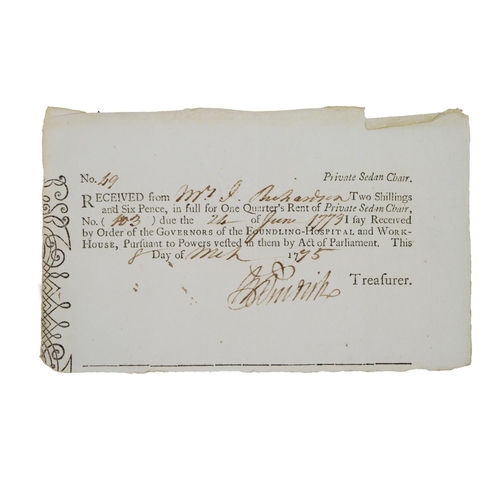 No. 49 Private Sedan Chair.
RECEIVED from Mrs. J. Richardson Two Shillings
and Six Pence, in full for One Quarter's Rent of Private Sedan Chair,
No. ( 103 ) due the 24 of June 1773 I ſay Received
by Order of the GOVERNORS of the FOUNDLING-HOSPITAL and WORK-
HOUSE, Purſuant to Powers veſted in them by Act of Parliament. This
8 Day of Mch 1775
Treaſurer.